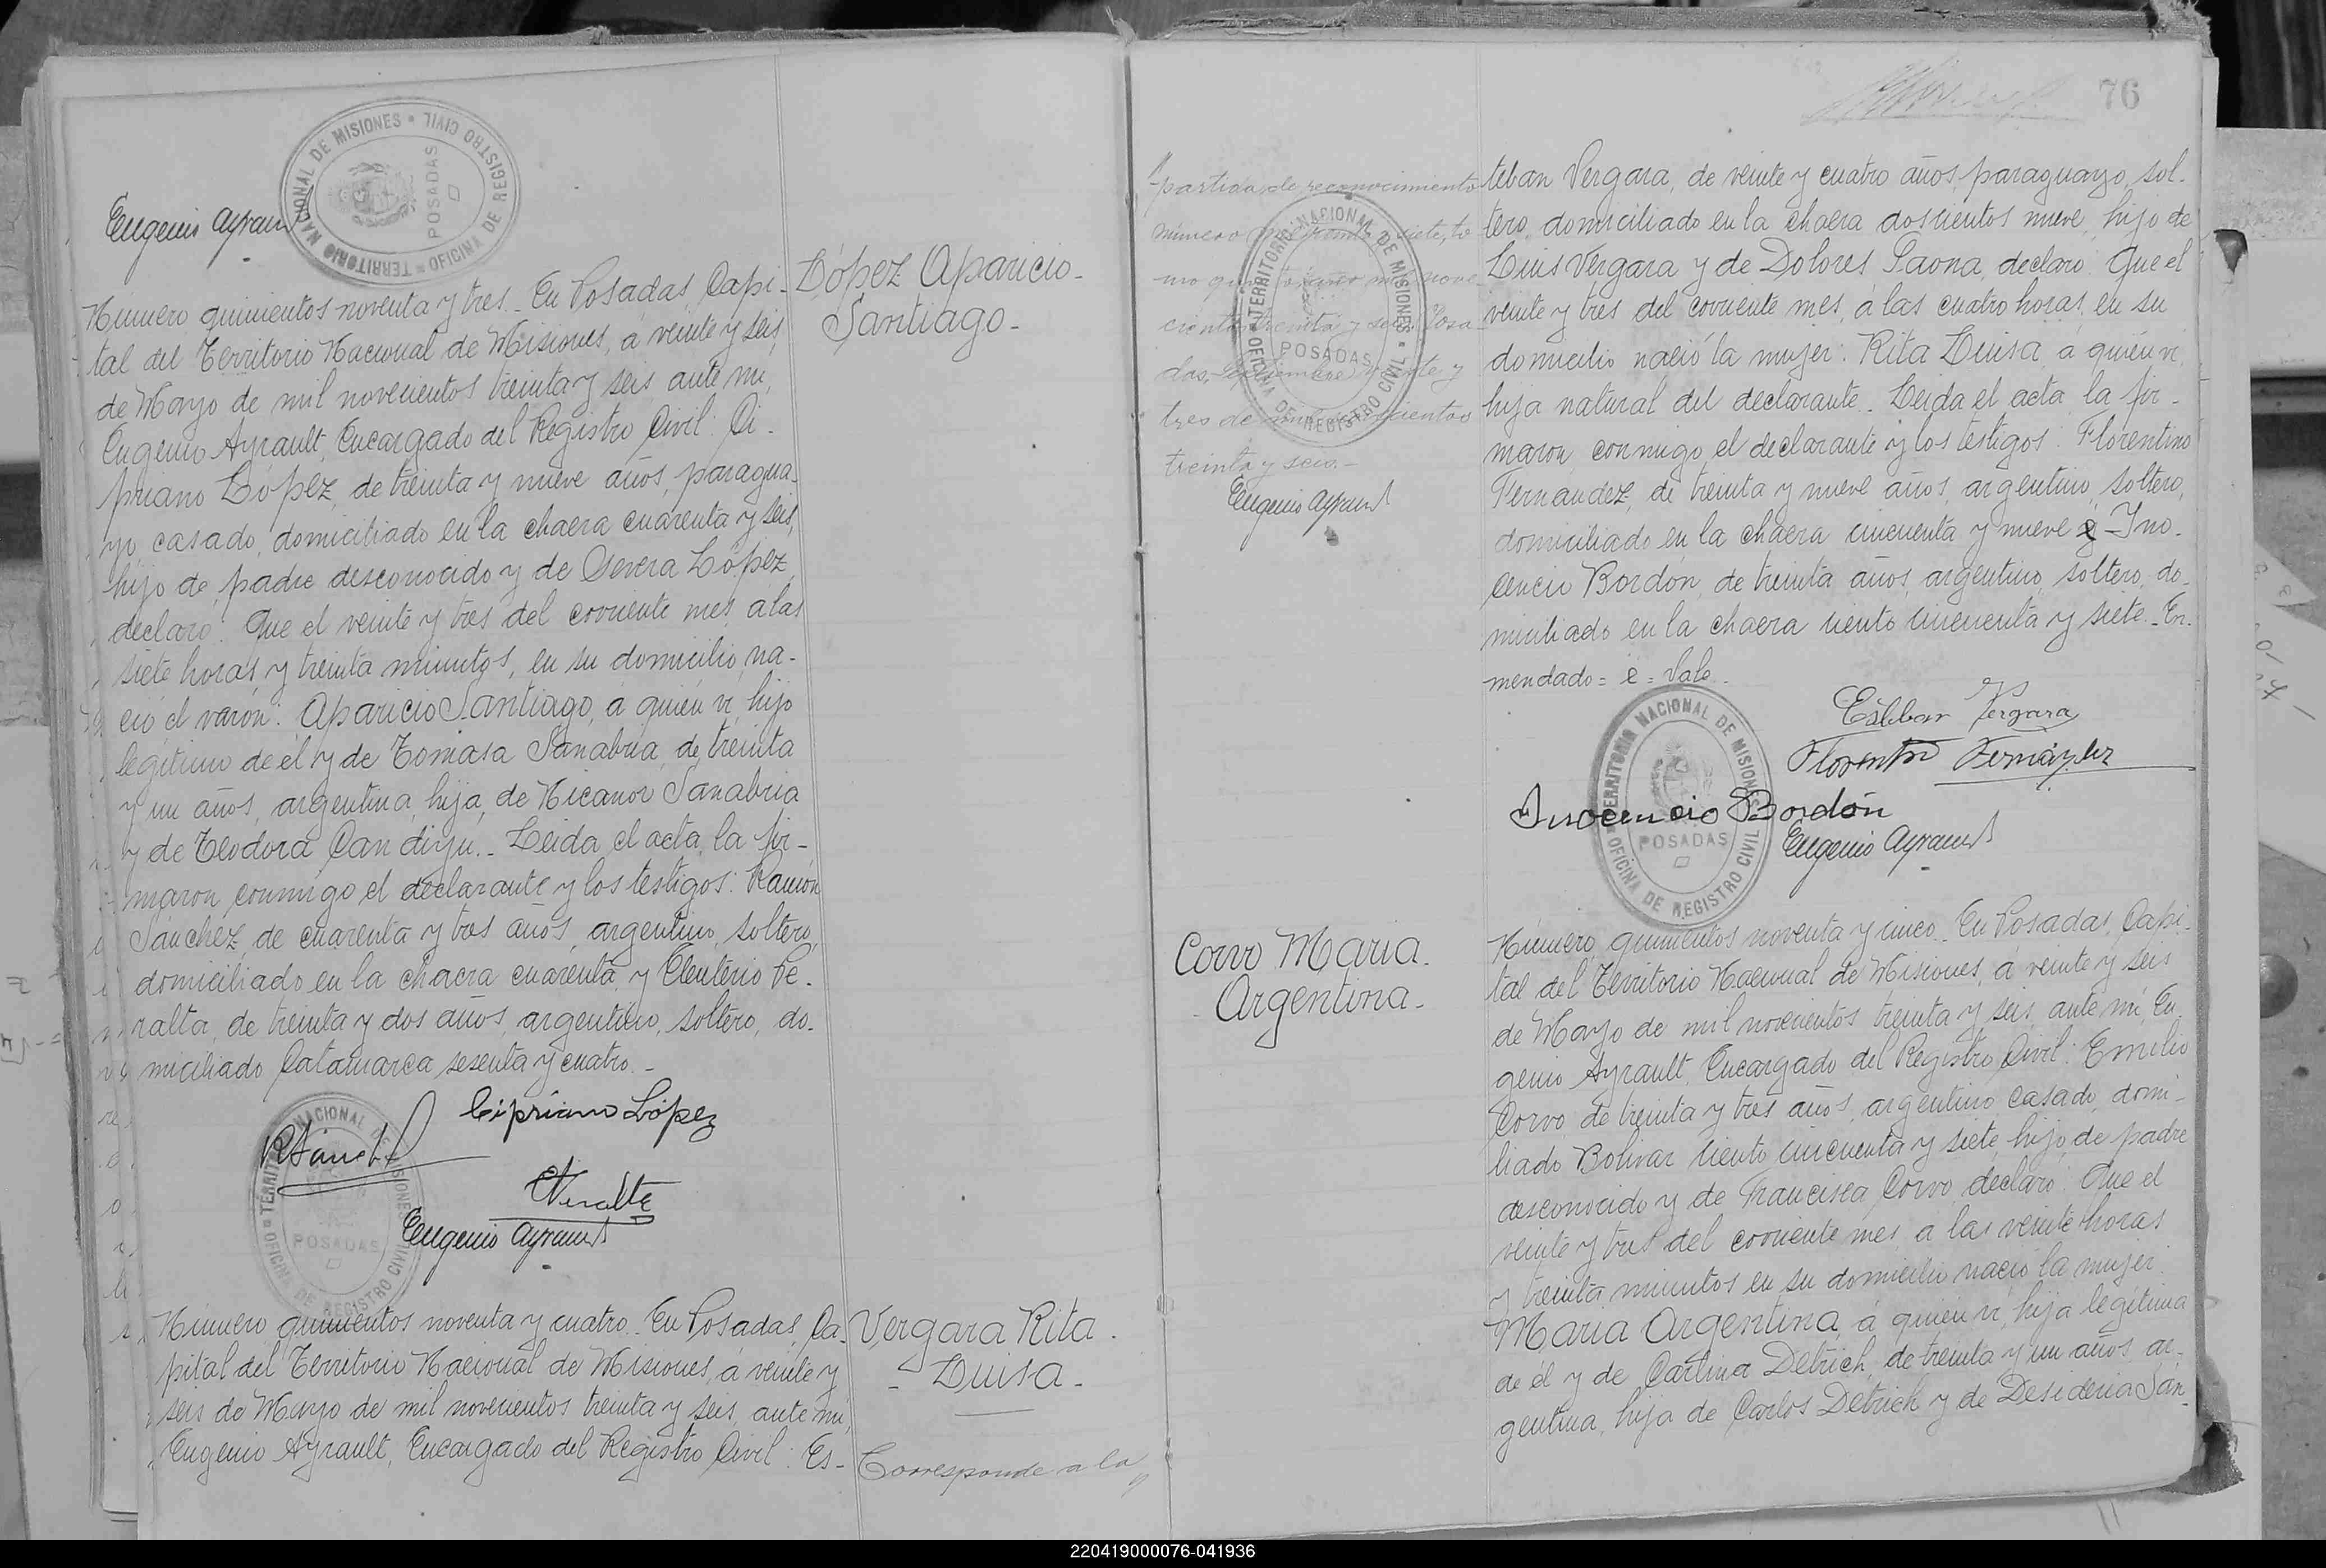 TERRITORIO NACIONAL DE MISIONES
OFICINA DE REGISTRO CIVIL
POSADAS
Eugenio Ayrault
Número quinientos noventa y tres._ En Posadas, Capi-
tal del Territorio Nacional de Misiones, á veinte y seis
de Mayo de mil novecientos treinta y seis, ante mi,
Eugenio Ayrault, Encargado del Registro Civil: Ci-
priano López, de treinta y nueve años, paragua-
yo casado, domiciliado en la chacra cuarenta y seis,
hijo de padre desconocido y de Severa López,
declaró: Que el veinte y tres del corriente mes, a las
siete horas y treinta minutos, en su domicilio, na-
ció el varón: Aparicio Santiago, á quién vi, hijo
legítimo de él y de Tomasa Sanabria, de treinta
y un años, argentina, hija de Nicanor Sanabria
y de Teodora Candiyú._ Leida el acta, la fir-
maron conmigo el declarante y los testigos: Ramón
Sánchez, de cuarenta y tres años, argentino, soltero,
domiciliado en la chacra cuarenta y Eleuterio Pe-
ralta, de treinta y dos años, argentino, soltero, do-
miciliado Catamarca sesenta y cuatro._
López Aparicio-
Santiago-
Cipriano López
RSánchez
EPeralta
Eugenio Ayrault
TERRITORIO NACIONAL DE MISIONES
OFICINA DE REGISTRO CIVIL
POSADAS
Número quinientos noventa y cuatro._ En Posadas, Ca-
pital del Territorio Nacional de Misiones, á veinte y
seis de Mayo de mil novecientos treinta y seis, ante mi,
Eugenio Ayrault, Encargado del Registro Civil: Es-
Vergara Rita
- Luisa -
Corresponde a la "
76
" partida de reconocimiento
número siete, to
mo año mil nove
cientos treinta y seis Posa
das, Setiembre veinte y
tres de mil novecientos
treinta y seis.-
Eugenio Ayrault
TERRITORIO NACIONAL DE MISIONES
OFICINA DE REGISTRO CIVIL
POSADAS
teban Vergara, de veinte y cuatro años, paraguayo, sol-
tero, domiciliado en la chacra doscientos nueve, hijo de
Luis Vergara y de Dolores Gaona, declaró: Que el
veinte y tres del corriente mes, á las cuatro horas, en su
domicilio nació la mujer: Rita Luisa, á quién vi,
hija natural del declarante._ Leida el acta la fir-
maron, conmigo el declarante y los testigos: Florentino
Fernandez, de treinta y nueve años, argentino, soltero,
domiciliado en la chacra cincuenta y nueve é Ino-
cencio Bordon, de treinta años, argentino, soltero, do-
miciliado en la chacra ciento cincuenta y siete._ En-
mendado= é = Vale._
Esteban Vergara
Florentino Fernández
Inocencio Bordón
Eugenio Ayrault
TERRITORIO NACIONAL DE MISIONES
OFICINA DE REGISTRO CIVIL
POSADAS
Corvo Maria
- Argentina.-
Número quinientos noventa y cinco._ En Posadas, Capi-
tal del Territorio Nacional de Misiones, á veinte y seis
de Mayo de mil novecientos treinta y seis, ante mi, Eu-
genio Ayrault, Encargado del Registro Civil: Emilio
Corvo de treinta y tres años, argentino, casado, domi-
liado Bolivar ciento cincuenta y siete, hijo de padre
desconocido y de Francisca Corvo, declaró: Que el
veinte y tres del corriente mes, a las veinte horas
y treinta minutos en su domicilio nació la mujer:
Maria Argentina, á quién vi, hija legítima
de él y de Carlina Detrich, de treinta y un años, ar-
gentina, hija de Carlos Detrich y de Desideria Sán-
220419000076-041936